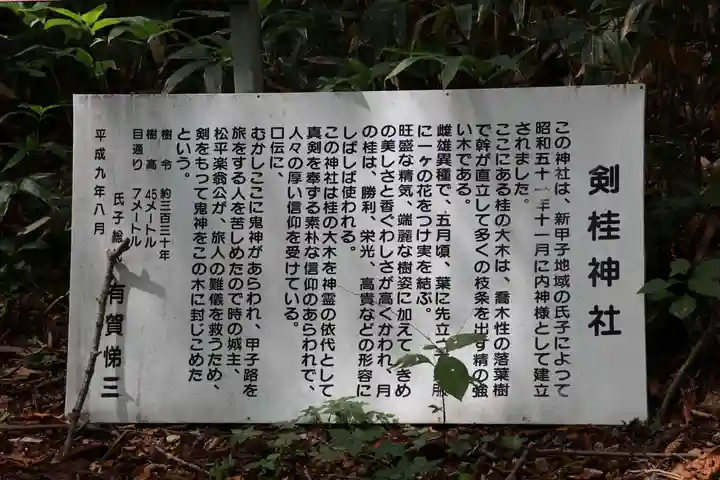 剣桂神社
この神社は、新甲子地域の氏子によって
昭和五十一年十一月に内神様として建立
されました。
ここにある桂の大木は、喬木性の落葉樹
で幹が直立して多くの枝条を出す精の強
い木である。
雌雄異種で、五月頃、葉に先立って
に一ヶの花をつけ実を結ぶ。
旺盛な精気、端麗な樹姿に加えて
の美しさと香ぐわしさが高くかわれ、月
の桂は、勝利、栄光、高貴などの形容に
しばしば使われる。
この神社は桂の大木を神霊の依代として
真剣を奉ずる素朴な信仰のあらわれで、
人々の厚い信仰を受けている。
口伝に、
むかしここに鬼神があらわれ、甲子路を
旅をする人を苦しめたので時の城主、
松平楽翁公が、旅人の難儀を救うため、
剣をもって鬼神をこの木に封じこめた
という。
樹令 約三百三十年
樹高 45メートル
目通り 7メートル
平成九年八月
氏子総
有賀悌三